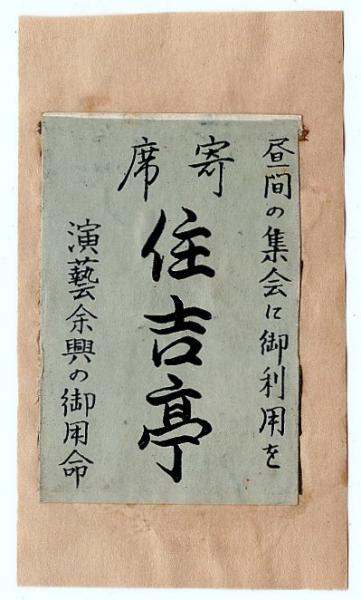 昼間の集会に御利用を
寄席
住吉亭
演藝余興の御用命